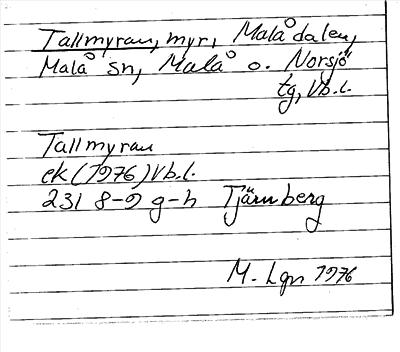 Tallmyran, myr, Malådalen,
Malå sn, Malå o. Norsjö
tg, Vb.l.
Tallmyran
ek (1976) Vb.l.
231 8-9 g-h Tjärnberg
M. Lgn 1976